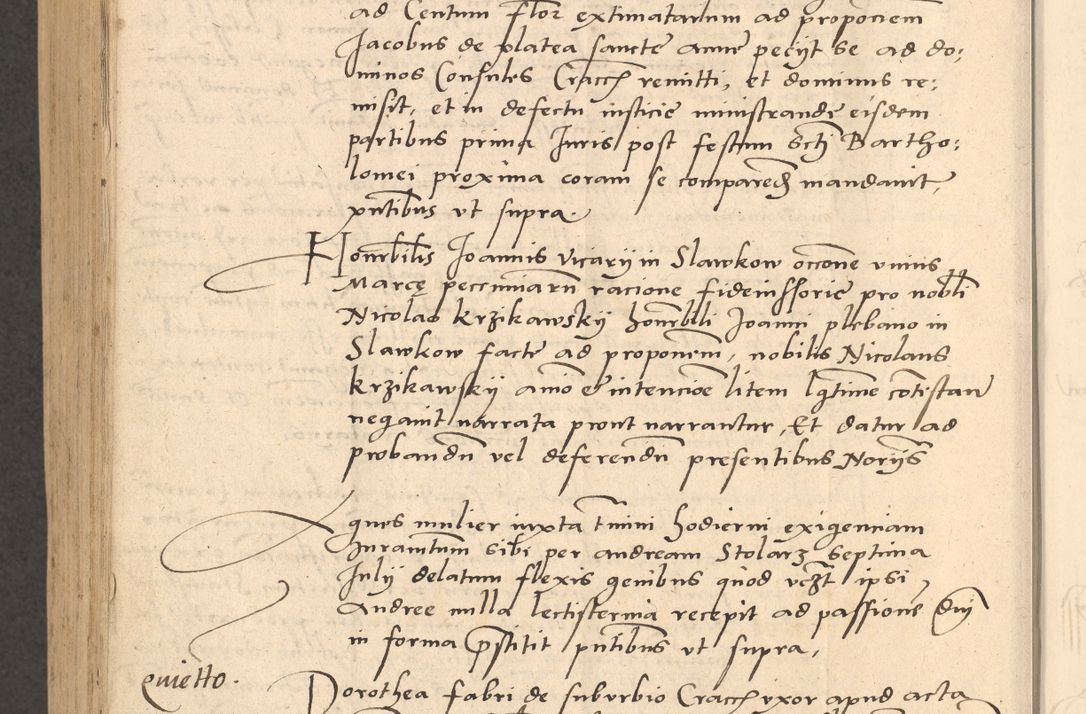 ad Centum flor extimatarum ad proponem
Jacobus de platea sancte anne pecijt se ad do:
minos Consules Cracch remitti, et dominus re:
misit, et in defectu insticie ministrande eisdem
partibus prima Juris post festum Scti Bartho:
lomei proxima coram se comparend mandavit,
pntibus vt supra.
Honorbilis Joannis vicarij in Slawkow occone vnius
Marce pecciniarn racione fideinssorie pro nobli
Nicolao Krzikawskij honorblli Joanni plebano in
Slawkow facte ad proponem, nobilis Nicolaus
Krzikawskij anio et intencioe litem lgtime contistan
negavit narrata prout narrantur, Et datur ad
probandn vel deferendn presentibus Norijs
Agnes mulier iuxta tmini hodierni exigenciam
Juramtum sibi per andream Stolarz septima
Julij delatum flexis genibus quod vczt ipsi
Andree nulla lectisternia recepit ad passione dni
in forma prstitit pntibus vt supra,
quietto.
Dorothea fabri de suburbio Cracch vxor apud acta